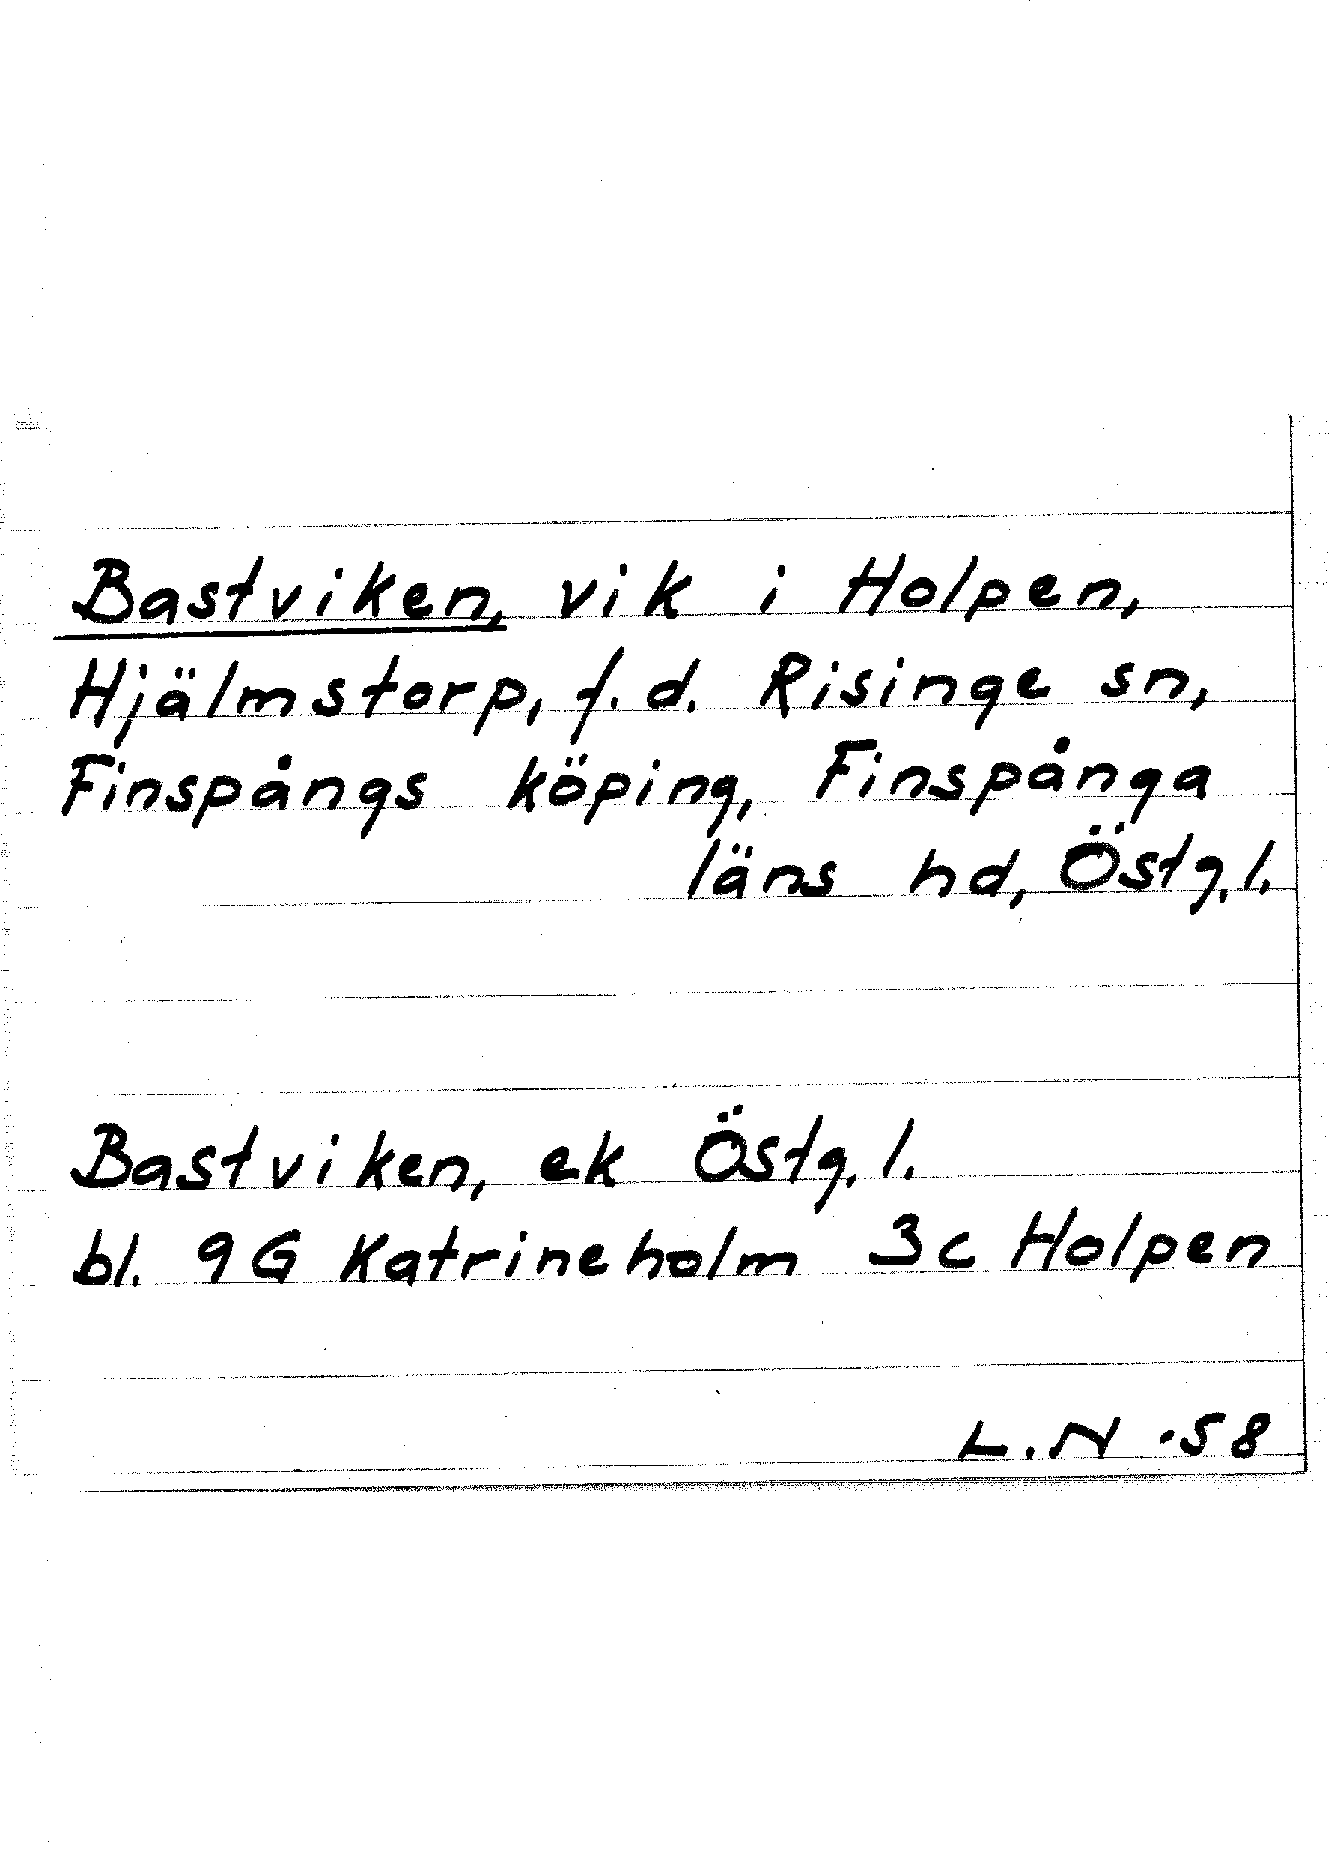 Bastviken, vik i Holpen,
Hjälmstorp, f.d. Risinge sn,
Finspångs köping, Finspånga
läns hd, Östg. l.
Bastviken, ek Östg. l.
bl. 9G Katrineholm 3c Holpen
L.N -58